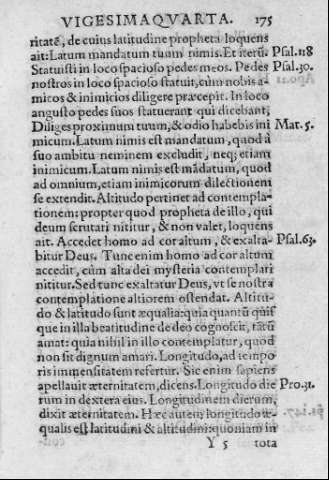 VIGESIMAQVARTA. 175
ritatē, de cuius latitudine propheta loquens
ait: Latum mandatum tuum nimis. Et iterū. Psal. 118
Statuisti in loco spacioso pedes meos. Pedes Psal. 30.
nostros in loco spacioso statuit, cùm nobis a-
micos & inimicios diligere præcepit. In loco
angusto pedes suos statuerant qui dicebant,
Diliges proximum tuum, & odio habebis ini Mat. 5.
micum. Latum nimis est mandatum, quod à
suo ambitu neminem excludit, neq; etiam
inimicum. Latum nimis est mādatum, quod
ad omnium, etiam inimicorum dilectionem
se extendit. Altitudo pertinet ad contempla-
tionem: propter quod propheta de illo, qui
deum scrutari nititur, & non valet, loquens
ait. Accedet homo ad cor altum, & exalta- Psal. 63.
bitur Deus. Tunc enim homo ad cor altum
accedit, cùm alta dei mysteria contemplari
nititur. Sed tunc exaltatur Deus, vt se nostra
contemplatione altiorem ostendat. Altitu-
do & latitudo sunt æqualia: quia quantū quis
que in illa beatitudine de deo cognoscit, tātū
amat: quia nihil in illo contemplatur, quod
non sit dignum amari. Longitudo, ad tempo
ris immensitatem refertur. Sic enim sapiens
apellauit æternitatem, dicens. Longitudo die Pro. 31.
rum in dextera eius. Longitudinem dierum,
dixit æternitatem. Hæc autem longitudo æ-
qualis est latitudini & altitudini: quoniam in
Y 5 tota